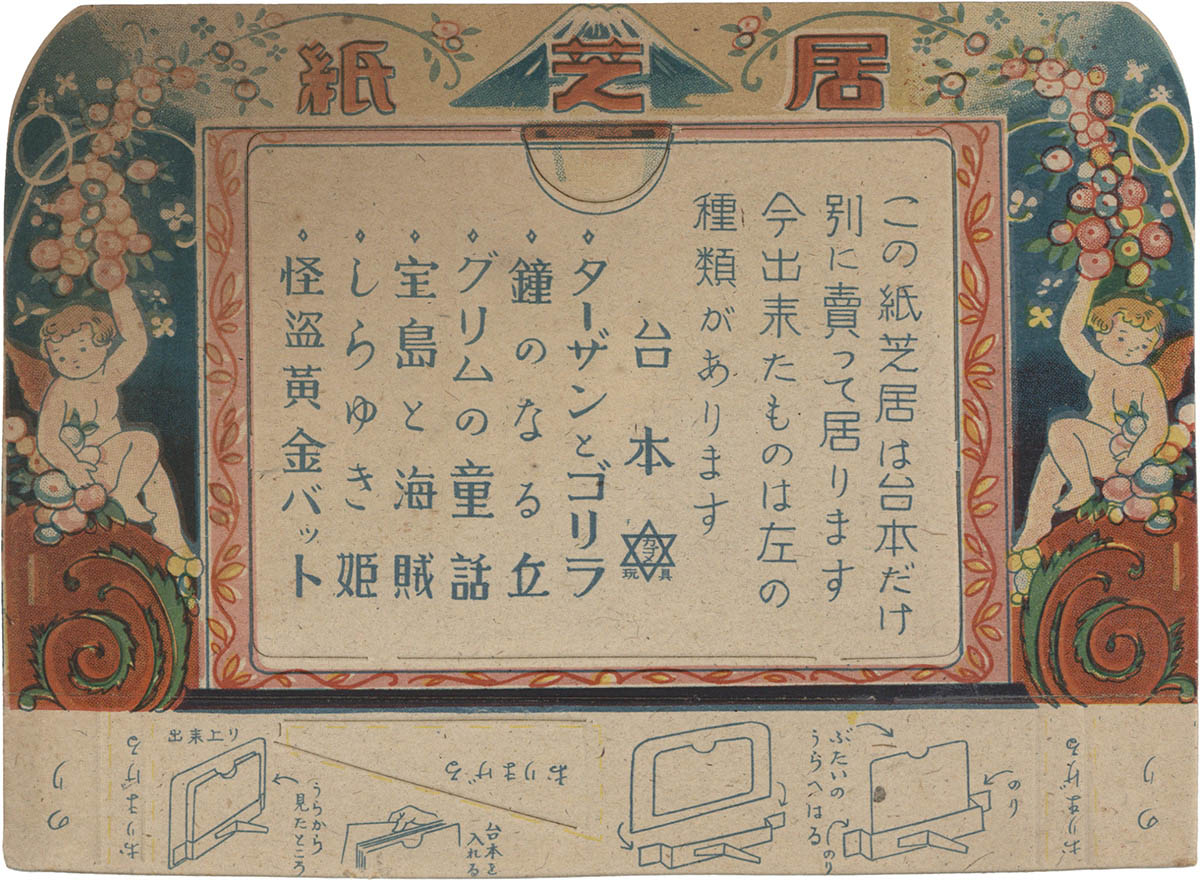 紙芝居
この紙芝居は台本だけ
別に賣って居ります
今出来たものは左の
種類があります
台本
カゴメ
玩具
◇ターザンとゴリラ
◇鐘のなる丘
◇グリムの童話
◇宝島と海賊
◇しらゆき姫
◇怪盗黄金バット
のり
おりまげる
のり
ぶたいの
うらへはる
のり
おりまげる
台本を
入れる
出来上り
うらから
見たところ
おりまげる
のり